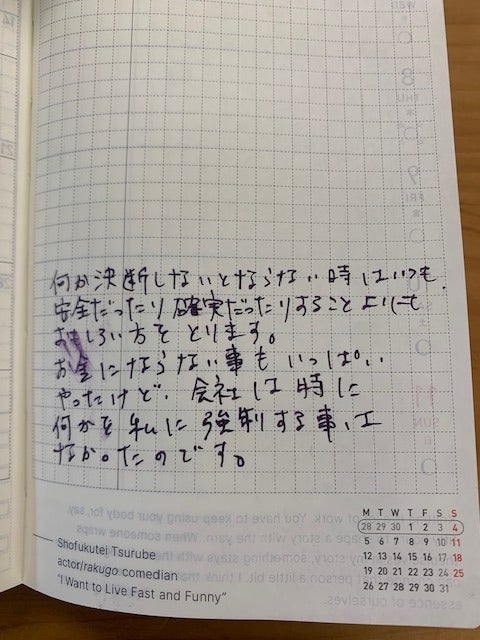 何か決断しないとならない時はいつも
安全だったり確実だったりすることよりも
おもしろい方をとります。
お金にならない事もいっぱい
やったけど、会社は時に
何かを私に強制する事は
なかったのです。
Shofukutei Tsurube
actor/rakugo comedian
"I Want to Live Fast and Funny"
M T W T F S S
28 29 30 1 2 3 4
5 6 7 8 9 10 11
12 13 14 15 16 17 18
19 20 21 22 23 24 25
26 27 28 29 30 31